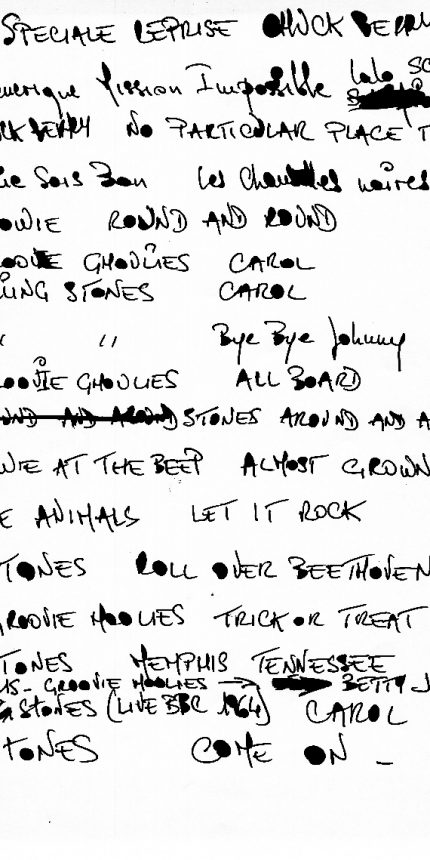 SPECIALE REPRISE CHUCK BERRY
nerique Mission Impossible Lalo SC
CK BERRY NO PARTICULAR PLACE T
ie Sois Bon les Chaussettes noires
OWIE ROUND AND ROUND
OOVIE GHOULIES CAROL
LING STONES CAROL
" " Bye Bye Johnny
OOVIE GHOULIES ALL BOARD
STONES AROUND AND A
WIE AT THE BEEP ALMOST GROWN
E ANIMALS LET IT ROCK
TONES ROLL OVER BEETHOVEN
GROOVIE HOOLIES TRICK OR TREAT
TONES MEMPHIS TENNESSEE
GROOVIE HOOLIES → BETTY J
G STONES (LIVE BBC 1964) CAROL
TONES COME ON _